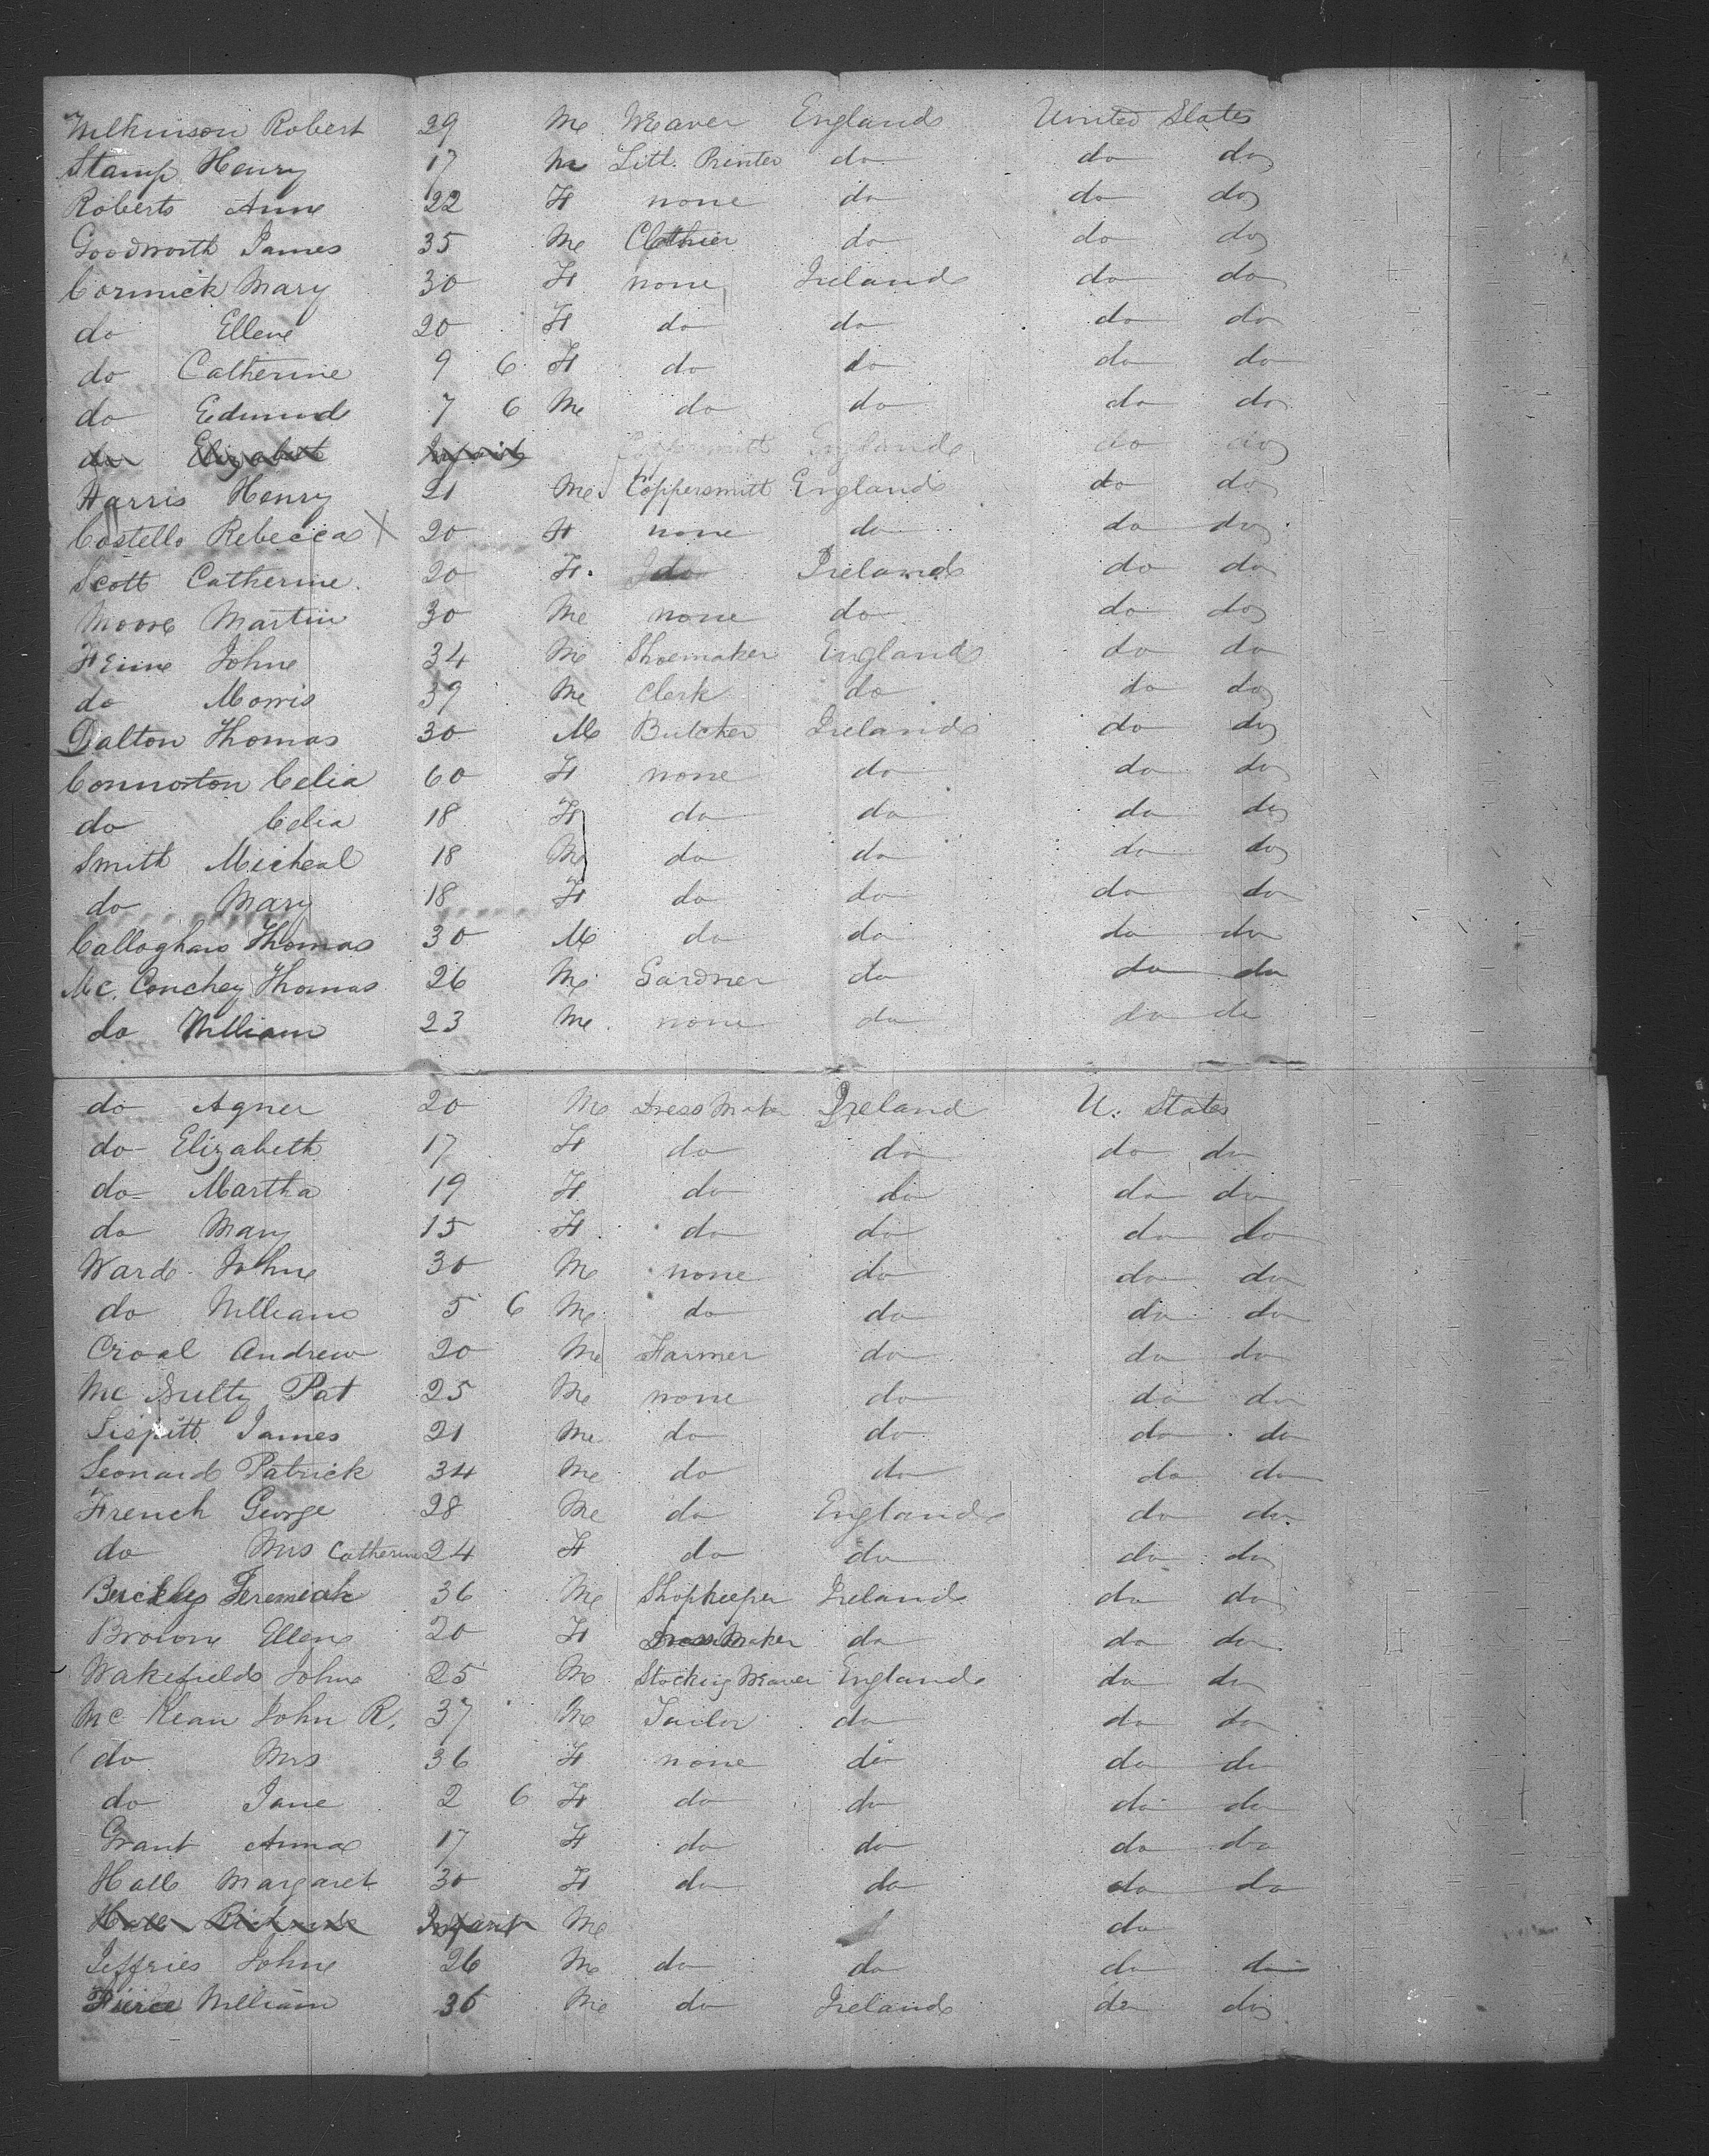 Wilkinson Robert 29 M Weaver England United States
Stamp Henry 17 M Litt. Printer do do do
Roberts Anne 22 F none do do do
Goodworth James 35 M Clothier do do do
Cormick Mary 30 F none Ireland do do
do Ellen 20 F do do do do
do Catherine 9 6 F do do do do
do Edmund 7 6 M do do do do
do Elizabeth Infant Coppersmith England do do
Harris Henry 21 M Coppersmith England do do
Costello Rebecca X 20 F none do do do
Scott Catherine 20 F. do Ireland do do
Moore Martin 30 M none do do do
John 34 M Shoemaker England do do
do Morris 39 M Clerk do do do
Dalton Thomas 30 M Butcher Ireland do do
Connorton Celia 60 F none do do do
do Celia 18 F do do do do
Smith Micheal 18 M do do do do
do Mary 18 F do do do do
Callaghan Thomas 30 M do do do do
Mc. Conchey Thomas 26 M Gardner do do do
do William 23 M none do do do
do Agner 20 M Dress Maker Ireland U. States
do Elizabeth 17 F do do do do
do Martha 19 F do do do do
do Mary 15 F do do do do
Ward John 30 M none do do do
do William 5 6 M do do do do
Croal Andrew 20 M Farmer do do do
Mc Nulty Pat 25 M none do do do
Lispitt James 21 M do do do do
Leonard Patrick 34 M do do do do
French George 28 M do England do do
do Mrs Catherine 24 F do do do do
Buckley Jeremiah 36 M Shopkeeper Ireland do do
Brown Ellen 20 F Dress Maker do do do
Wakefield John 25 M Stocking Weaver England do do
Mc Kean John R. 37 M Tailor do do do
do Mrs 36 F none do do do
do Jane 2 6 F do do do do
Grant Anna 17 F do do do do
Hall Margaret 30 F do do do do
Hall Infant M do
Jeffries John 26 M do do do do
Pierce William 36 M do Ireland do do